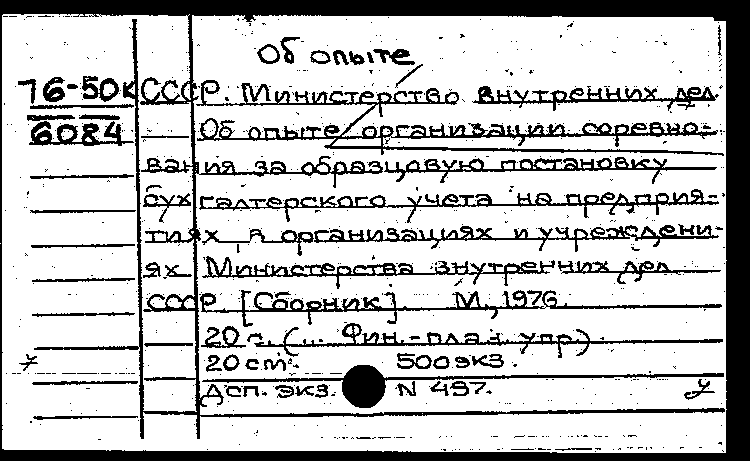 Об опыте
76-50к СССР. Министерство внутренних дел.
6084 Об опыте организации соревно-
вания за образцовую постановку
бухгалтерского учета на предприя-
тиях, в организациях и учреждени-
ях Министерства внутренних дел
СССР. [Сборник]. М., 1976.
20 с. (... Фин.-план. упр.)
20 см. 500 экз.
Дсп. экз. N 497.